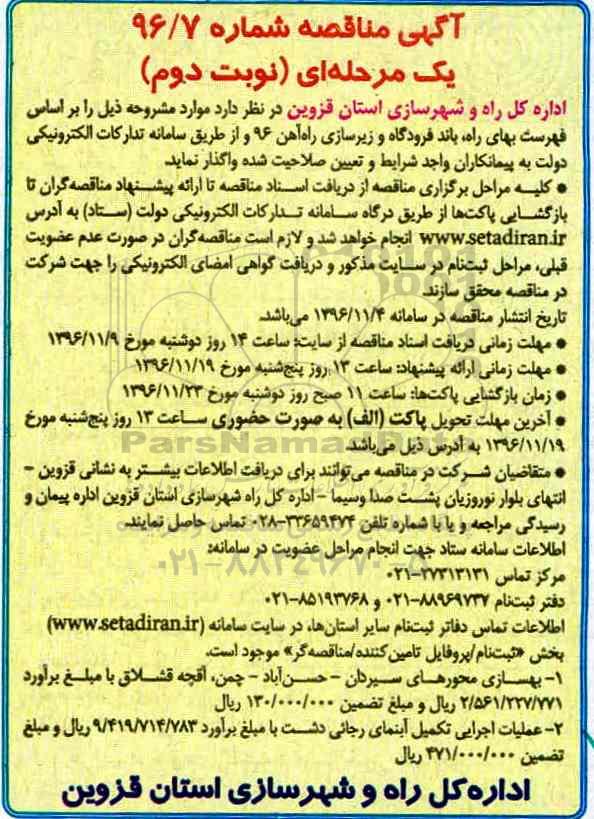 آگهی مناقصه شماره ۹۶/۷
یک مرحله‌ای (نوبت دوم)
اداره کل راه و شهرسازی استان قزوین در نظر دارد موارد مشروحه ذیل را بر اساس
فهرست بهای راه، باند فرودگاه و زیرسازی راه‌آهن ۹۶ و از طریق سامانه تدارکات الکترونیکی
دولت به پیمانکاران واجد شرایط و تعیین صلاحیت شده واگذار نماید.
● کلیه مراحل برگزاری مناقصه از دریافت اسناد مناقصه تا ارائه پیشنهاد مناقصه‌گران تا
بازگشایی پاکت‌ها از طریق درگاه سامانه تدارکات الکترونیکی دولت (ستاد) به آدرس
www.setadiran.ir انجام خواهد شد و لازم است مناقصه‌گران در صورت عدم عضویت
قبلی، مراحل ثبت‌نام در سایت مذکور و دریافت گواهی امضای الکترونیکی را جهت شرکت
در مناقصه محقق سازند.
تاریخ انتشار مناقصه در سامانه ۱۳۹۶/۱۱/۴ می‌باشد.
● مهلت زمانی دریافت اسناد مناقصه از سایت: ساعت ۱۴ روز دوشنبه مورخ ۱۳۹۶/۱۱/۹
● مهلت زمانی ارائه پیشنهاد: ساعت ۱۳ روز پنج‌شنبه مورخ ۱۳۹۶/۱۱/۱۹
● زمان بازگشایی پاکت‌ها: ساعت ۱۱ صبح روز دوشنبه مورخ ۱۳۹۶/۱۱/۲۳
● آخرین مهلت تحویل پاکت (الف) به صورت حضوری ساعت ۱۳ روز پنج‌شنبه مورخ
۱۳۹۶/۱۱/۱۹ به آدرس ذیل می‌باشد.
● متقاضیان شرکت در مناقصه می‌توانند برای دریافت اطلاعات بیشتر به نشانی قزوین -
انتهای بلوار نوروزیان پشت صدا وسیما - اداره کل راه شهرسازی استان قزوین اداره پیمان و
رسیدگی مراجعه و یا با شماره تلفن ۳۳۶۵۹۴۷۴-۰۲۸ تماس حاصل نمایند.
اطلاعات سامانه ستاد جهت انجام مراحل عضویت در سامانه:
مرکز تماس ۲۷۳۱۳۱۳۱-۰۲۱
دفتر ثبت‌نام ۸۸۹۶۹۷۳۷-۰۲۱ و ۸۵۱۹۳۷۶۸-۰۲۱
اطلاعات تماس دفاتر ثبت‌نام سایر استان‌ها، در سایت سامانه (www.setadiran.ir)
بخش «ثبت‌نام/پروفایل تامین‌کننده/مناقصه‌گر» موجود است.
۱- بهسازی محورهای سیردان - حسن‌آباد - چمن، آقچه قشلاق با مبلغ برآورد
۲/۵۶۱/۲۲۷/۷۷۱ ریال و مبلغ تضمین ۱۳۰/۰۰۰/۰۰۰ ریال
۲- عملیات اجرایی تکمیل آبنمای رجائی دشت با مبلغ برآورد ۹/۴۱۹/۷۱۴/۷۸۳ ریال و مبلغ
تضمین ۴۷۱/۰۰۰/۰۰۰ ریال
اداره‌کل راه و شهرسازی استان قزوین
ParsNamadData
۰۲۱-۸۸۳۴۹۶۷۰-۵